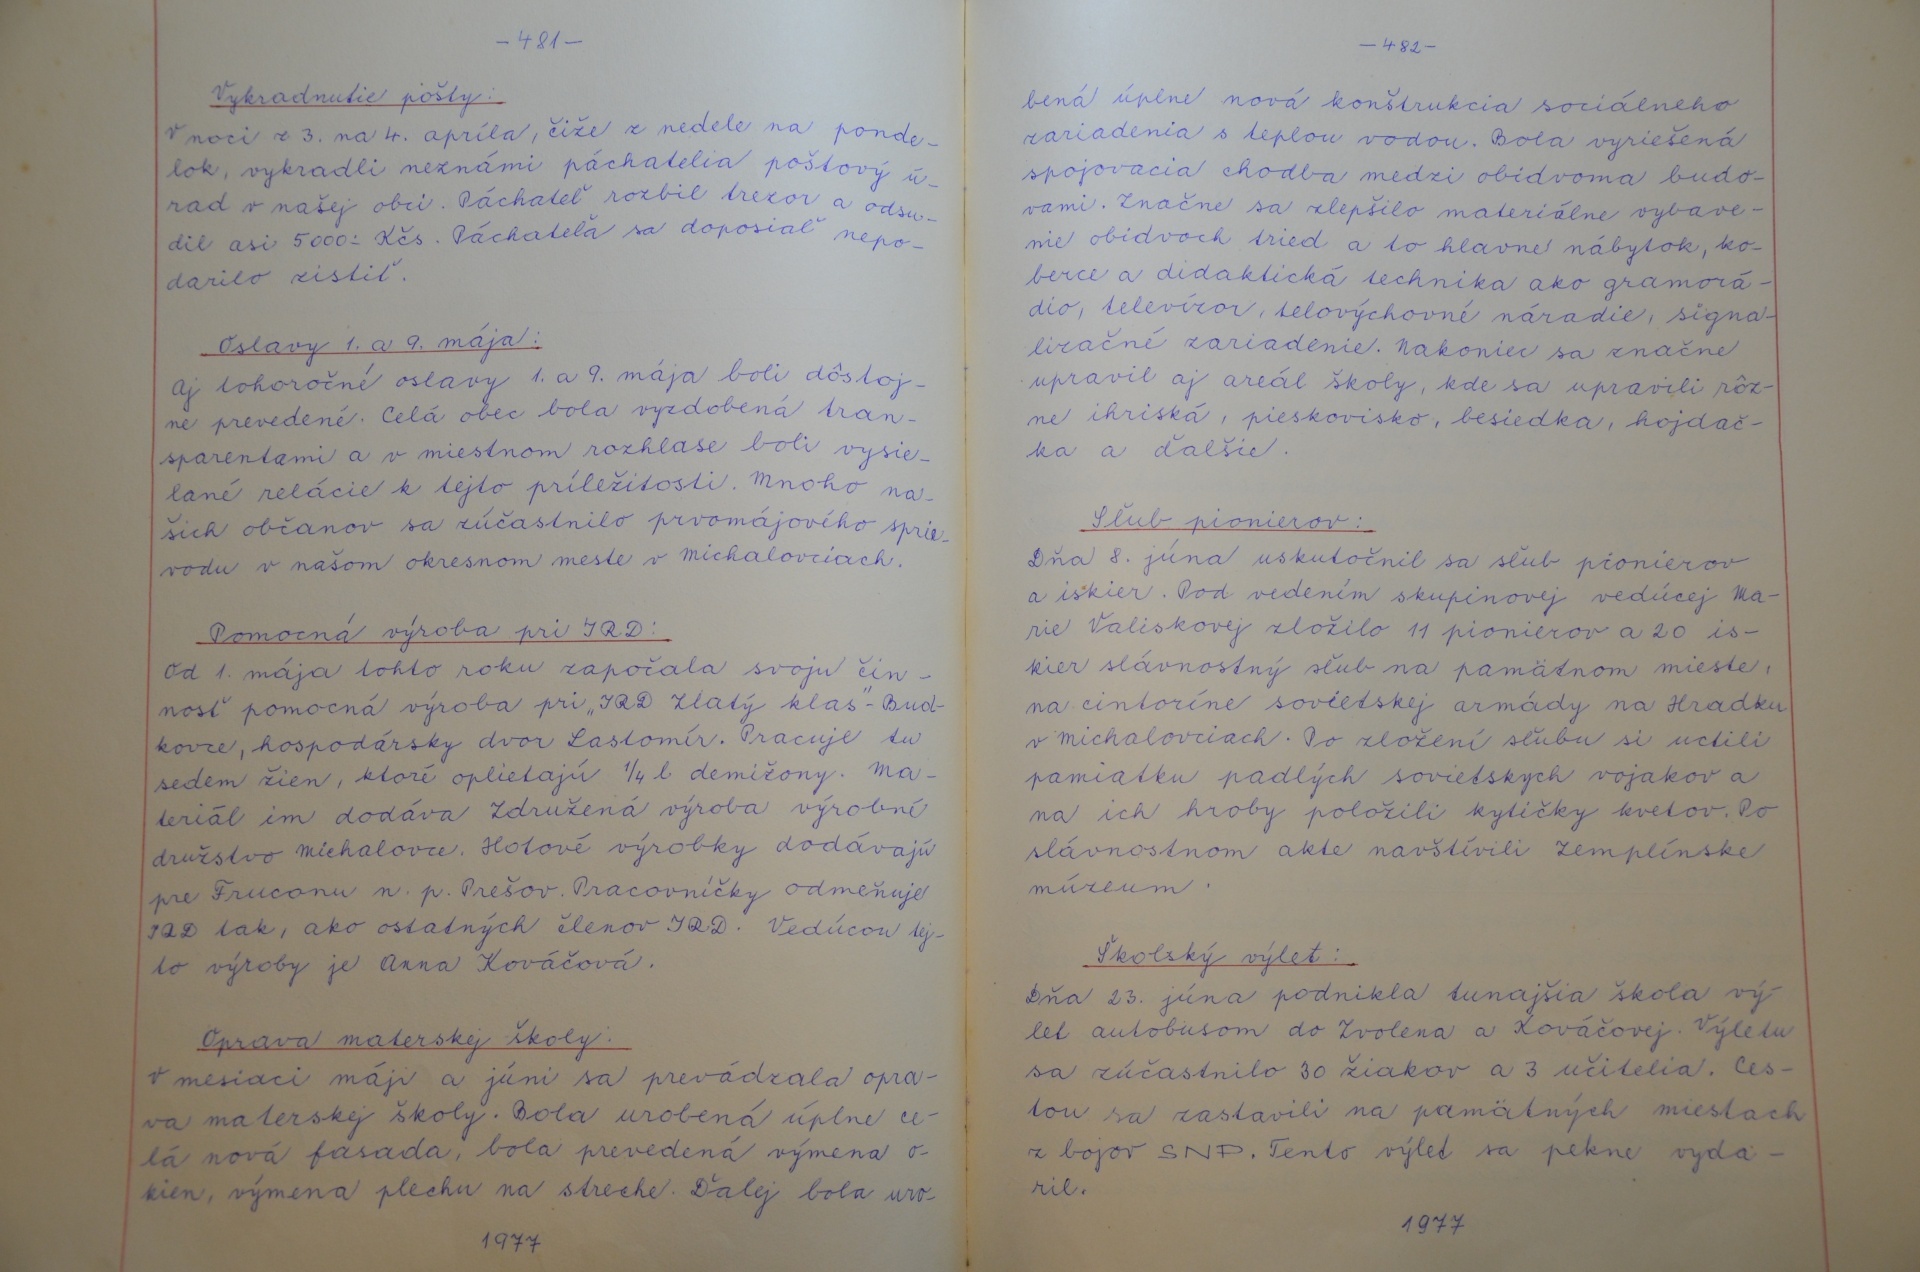 -481-
Vykradnutie pošty:
V noci z 3. na 4. apríla, čiže z nedele na ponde-
lok, vykradli neznámi páchatelia poštový ú-
rad v našej obci. Páchateľ rozbil trezor a odsu-
dil asi 5000.- Kčs. Páchateľa sa doposiaľ nepo-
darilo zistiť.
Oslavy 1. a 9. mája:
Aj tohoročné oslavy 1. a 9. mája boli dôstoj-
ne prevedené. Celá obec bola vyzdobená tran-
sparentami a v miestnom rozhlase boli vysie-
lané relácie k tejto príležitosti. Mnoho na-
šich občanov sa zúčastnilo prvomájového sprie-
vodu v našom okresnom meste v Michalovciach.
Pomocná výroba pri JRD:
Od 1. mája tohto roku započala svoju čin-
nosť pomocná výroba pri „JRD Zlatý klas"- Bud-
kovce, hospodársky dvor Lastomír. Pracuje tu
sedem žien, ktoré oplietajú 1/4 l demižony. Ma-
teriál im dodáva Združená výroba výrobní
družstvo Michalovce. Hotové výrobky dodávajú
pre Fruconu n. p. Prešov. Pracovníčky odmeňuje
JRD tak, ako ostatných členov JRD. Vedúcou tej-
to výroby je Anna Kováčová.
Oprava materskej školy:
V mesiaci máji a júni sa prevádzala opra-
va materskej školy. Bola urobená úplne ce-
lá nová fasada, bola prevedená výmena o-
kien, výmena plechu na streche. Ďalej bola uro-
1977
-482-
bená úplne nová konštrukcia sociálneho
zariadenia s teplou vodou. Bola vyriešená
spojovacia chodba medzi obidvoma budo-
vami. Značne sa zlepšilo materiálne vybave-
nie obidvoch tried a to hlavne nábytok, ko-
berce a didaktická technika ako gramorá-
dio, televízor, telovýchovné náradie, signa-
lizačné zariadenie. Nakoniec sa značne
upravil aj areál školy, kde sa upravili rôz-
ne ihriská, pieskovisko, besiedka, hojdač-
ka a ďalšie.
Sľub pionierov:
Dňa 8. júna uskutočnil sa sľub pionierov
a iskier. Pod vedením skupinovej vedúcej Ma-
rie Valiskovej zložilo 11 pionierov a 20 is-
kier slávnostný sľub na pamätnom mieste,
na cintoríne sovietskej armády na Hradku
v Michalovciach. Po zložení sľubu si uctili
pamiatku padlých sovietskych vojakov a
na ich hroby položili kytičky kvetov. Po
slávnostnom akte navštívili Zemplínske
múzeum.
Školský výlet:
Dňa 23. júna podnikla tunajšia škola vý-
let autobusom do Zvolena a Kováčovej. Výletu
sa zúčastnilo 30 žiakov a 3 učitelia. Ces-
tou sa zastavili na pamätných miestach
z bojov SNP. Tento výlet sa pekne vyda-
ril.
1977